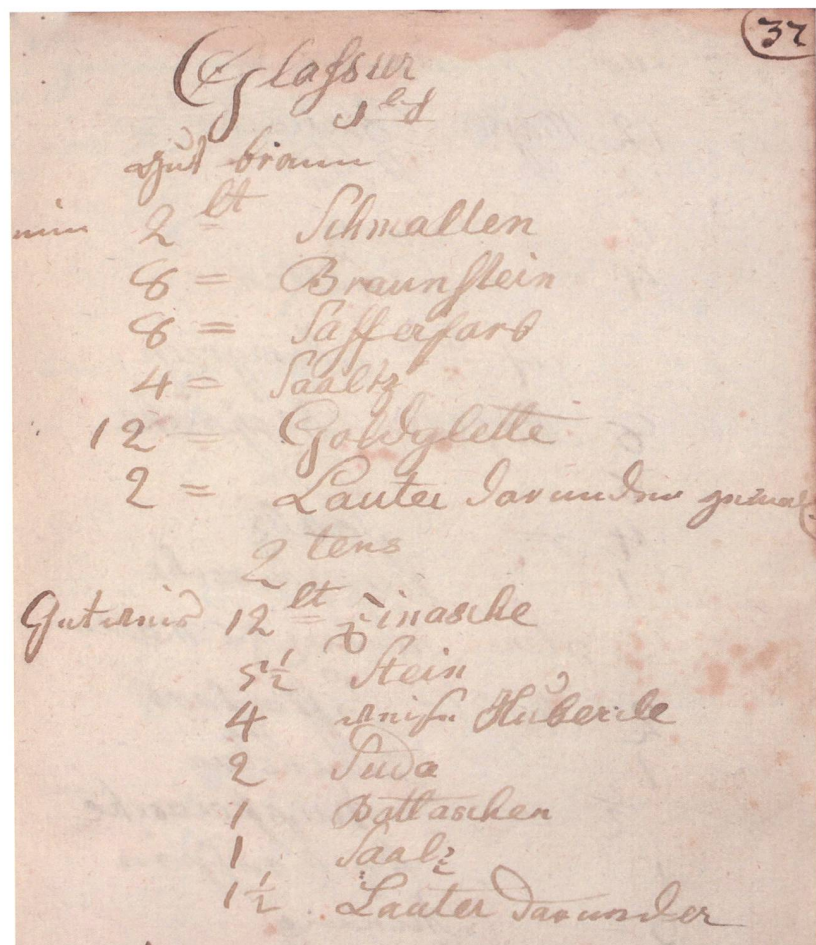 37
Glassur
1 tens
gut braun
nim 2 lt Schmalten
8 = Braunstein
8 = Safferfarb
4 = Saaltz
12 = Goldglette
2 = Lauter darunder
2 tens
12 lt Zinasche
5 1/2 Stein
4 weise Huberde
2 Suda
1 Pottaschen
1 Saalz
1 1/2 Lauter darunder